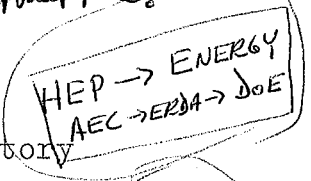 HEP → ENERGY
AEC → ERDA → DOE
tory